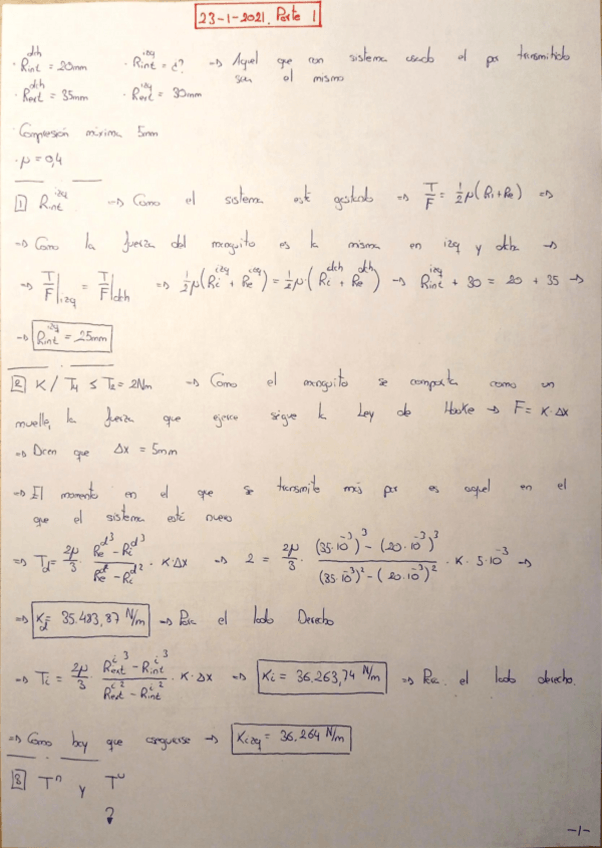 23-1-2021. Parte 1
· R_int^dch = 20mm · R_int^izq = ¿? → Aquel que con sistema usado el par transmitido
sea el mismo
· R_ext^dch = 35mm · R_ext^izq = 30mm
· Compresión máxima 5mm
· μ = 0,4
1 R_int^izq → Como el sistema está gastado ⇒ T/F = 1/2 μ(Ri + Re) ⇒
⇒ Como la fuerza del manguito es la misma en izq y dcha →
→ T/F|izq = T/F|dch ⇒ 1/2 μ(Ri^izq + Re^izq) = 1/2 μ·(Ri^dch + Re^dch) → R_int^izq + 30 = 20 + 35 →
→ R_int^izq = 25mm
2 K / T1 ≤ T2 = 2Nm → Como el manguito se comporta como un
muelle, la fuerza que ejerce sigue la Ley de Hooke → F = K·Δx
⇒ Dicen que Δx = 5mm
⇒ El momento en el que se transmite más par es aquel en el
que el sistema está nuevo
⇒ Td = 2μ/3 · (Re^d³ - Ri^d³)/(Re^d² - Ri^d²) · K·Δx → 2 = 2μ/3 · ((35·10⁻³)³ - (20·10⁻³)³)/((35·10⁻³)² - (20·10⁻³)²) · K · 5·10⁻³ →
⇒ Kd = 35.483,87 N/m → Para el lado Derecho
→ Ti = 2μ/3 · (R_ext^i³ - R_int^i³)/(R_ext^i² - R_int^i²) · K·Δx ⇒ Ki = 36.263,74 N/m ⇒ Para el lado derecho.
⇒ Como hay que asegurarse → Kizq = 36.264 N/m
3 Tⁿ y Tᵘ
?
-1-